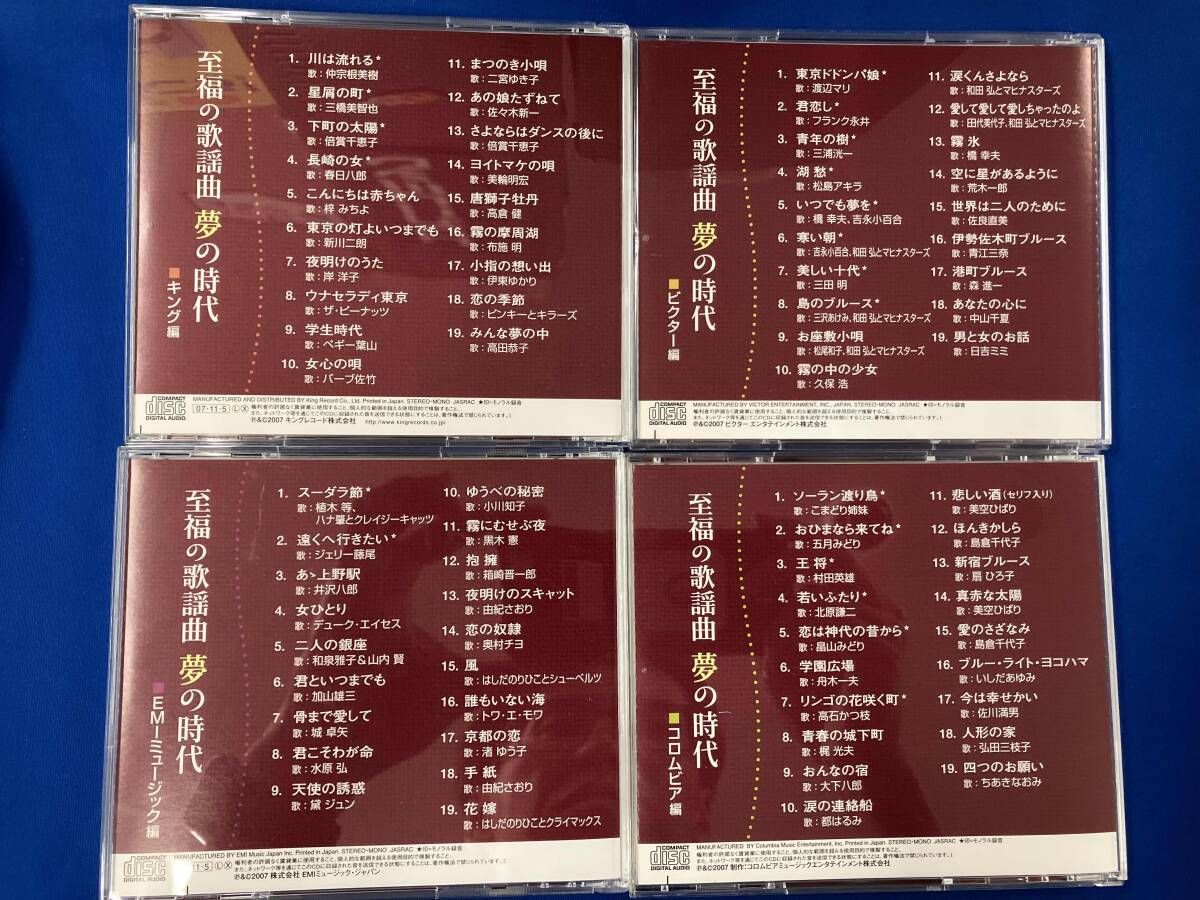 至福の歌謡曲 夢の時代
■キング編
1. 川は流れる*
歌:仲宗根美樹
2. 星屑の町*
歌:三橋美智也
3. 下町の太陽*
歌:倍賞千恵子
4. 長崎の女*
歌:春日八郎
5. こんにちは赤ちゃん
歌:梓 みちよ
6. 東京の灯よいつまでも
歌:新川二朗
7. 夜明けのうた
歌:岸 洋子
8. ウナセラディ東京
歌:ザ・ピーナッツ
9. 学生時代
歌:ペギー葉山
10. 女心の唄
歌:バーブ佐竹
11. まつのき小唄
歌:二宮ゆき子
12. あの娘たずねて
歌:佐々木新一
13. さよならはダンスの後に
歌:倍賞千恵子
14. ヨイトマケの唄
歌:美輪明宏
15. 唐獅子牡丹
歌:高倉 健
16. 霧の摩周湖
歌:布施 明
17. 小指の想い出
歌:伊東ゆかり
18. 恋の季節
歌:ピンキーとキラーズ
19. みんな夢の中
歌:高田恭子
COMPACT disc DIGITAL AUDIO
MANUFACTURED AND DISTRIBUTED BY King Record Co., Ltd. Printed in Japan. STEREO・MONO JASRAC ★印=モノラル録音
07・11・5 Ⓛ Ⓧ
権利者の許諾なく賃貸業に使用すること、個人的な範囲を超える使用目的で複製すること、
また、ネットワーク等を通じてこのCDに収録された音を送信できる状態にすることは、著作権法で禁じられています。
℗&©2007 キングレコード株式会社 http://www.kingrecords.co.jp/
至福の歌謡曲 夢の時代
■ビクター編
1. 東京ドドンパ娘*
歌:渡辺マリ
2. 君恋し*
歌:フランク永井
3. 青年の樹*
歌:三浦洸一
4. 湖愁*
歌:松島アキラ
5. いつでも夢を*
歌:橋 幸夫、吉永小百合
6. 寒い朝*
歌:吉永小百合、和田 弘とマヒナスターズ
7. 美しい十代*
歌:三田 明
8. 島のブルース*
歌:三沢あけみ、和田 弘とマヒナスターズ
9. お座敷小唄
歌:松尾和子、和田 弘とマヒナスターズ
10. 霧の中の少女
歌:久保 浩
11. 涙くんさよなら
歌:和田 弘とマヒナスターズ
12. 愛して愛して愛しちゃったのよ
歌:田代美代子、和田 弘とマヒナスターズ
13. 霧氷
歌:橋 幸夫
14. 空に星があるように
歌:荒木一郎
15. 世界は二人のために
歌:佐良直美
16. 伊勢佐木町ブルース
歌:青江三奈
17. 港町ブルース
歌:森 進一
18. あなたの心に
歌:中山千夏
19. 男と女のお話
歌:日吉ミミ
COMPACT disc DIGITAL AUDIO
MANUFACTURED BY VICTOR ENTERTAINMENT, INC. JAPAN. STEREO・MONO JASRAC ★印=モノラル録音
権利者の許諾なく賃貸業に使用すること、個人的な範囲を超える使用目的で複製すること、
また、ネットワーク等を通じてこのCDに収録された音を送信できる状態にすることは、著作権法で禁じられています。
℗&©2007 ビクター エンタテインメント株式会社
至福の歌謡曲 夢の時代
■EMIミュージック編
1. スーダラ節*
歌:植木 等、
ハナ肇とクレイジーキャッツ
2. 遠くへ行きたい*
歌:ジェリー藤尾
3. あゝ上野駅
歌:井沢八郎
4. 女ひとり
歌:デューク・エイセス
5. 二人の銀座
歌:和泉雅子&山内 賢
6. 君といつまでも
歌:加山雄三
7. 骨まで愛して
歌:城 卓矢
8. 君こそわが命
歌:水原 弘
9. 天使の誘惑
歌:黛 ジュン
10. ゆうべの秘密
歌:小川知子
11. 霧にむせぶ夜
歌:黒木 憲
12. 抱擁
歌:箱崎晋一郎
13. 夜明けのスキャット
歌:由紀さおり
14. 恋の奴隷
歌:奥村チヨ
15. 風
歌:はしだのりひことシューベルツ
16. 誰もいない海
歌:トワ・エ・モワ
17. 京都の恋
歌:渚 ゆう子
18. 手紙
歌:由紀さおり
19. 花嫁
歌:はしだのりひことクライマックス
COMPACT disc DIGITAL AUDIO
MANUFACTURED BY EMI Music Japan Inc. Printed in Japan. STEREO・MONO JASRAC ★印=モノラル録音
1・5 Ⓛ Ⓧ
権利者の許諾なく賃貸業に使用すること、個人的な範囲を超える使用目的で複製すること、
また、ネットワーク等を通じてこのCDに収録された音を送信できる状態にすることは、著作権法で禁じられています。
℗&©2007 株式会社 EMIミュージック・ジャパン
至福の歌謡曲 夢の時代
■コロムビア編
1. ソーラン渡り鳥*
歌:こまどり姉妹
2. おひまなら来てね*
歌:五月みどり
3. 王将*
歌:村田英雄
4. 若いふたり*
歌:北原謙二
5. 恋は神代の昔から*
歌:畠山みどり
6. 学園広場
歌:舟木一夫
7. リンゴの花咲く町*
歌:高石かつ枝
8. 青春の城下町
歌:梶 光夫
9. おんなの宿
歌:大下八郎
10. 涙の連絡船
歌:都はるみ
11. 悲しい酒(セリフ入り)
歌:美空ひばり
12. ほんきかしら
歌:島倉千代子
13. 新宿ブルース
歌:扇 ひろ子
14. 真赤な太陽
歌:美空ひばり
15. 愛のさざなみ
歌:島倉千代子
16. ブルー・ライト・ヨコハマ
歌:いしだあゆみ
17. 今は幸せかい
歌:佐川満男
18. 人形の家
歌:弘田三枝子
19. 四つのお願い
歌:ちあきなおみ
COMPACT disc DIGITAL AUDIO
MANUFACTURED BY Columbia Music Entertainment, Inc. Printed in Japan. STEREO・MONO JASRAC ★印=モノラル録音
権利者の許諾なく賃貸業に使用すること、個人的な範囲を超える使用目的で複製すること、
また、ネットワーク等を通じてこのCDに収録された音を送信できる状態にすることは、著作権法で禁じられています。
℗&©2007 制作:コロムビアミュージックエンタテインメント株式会社